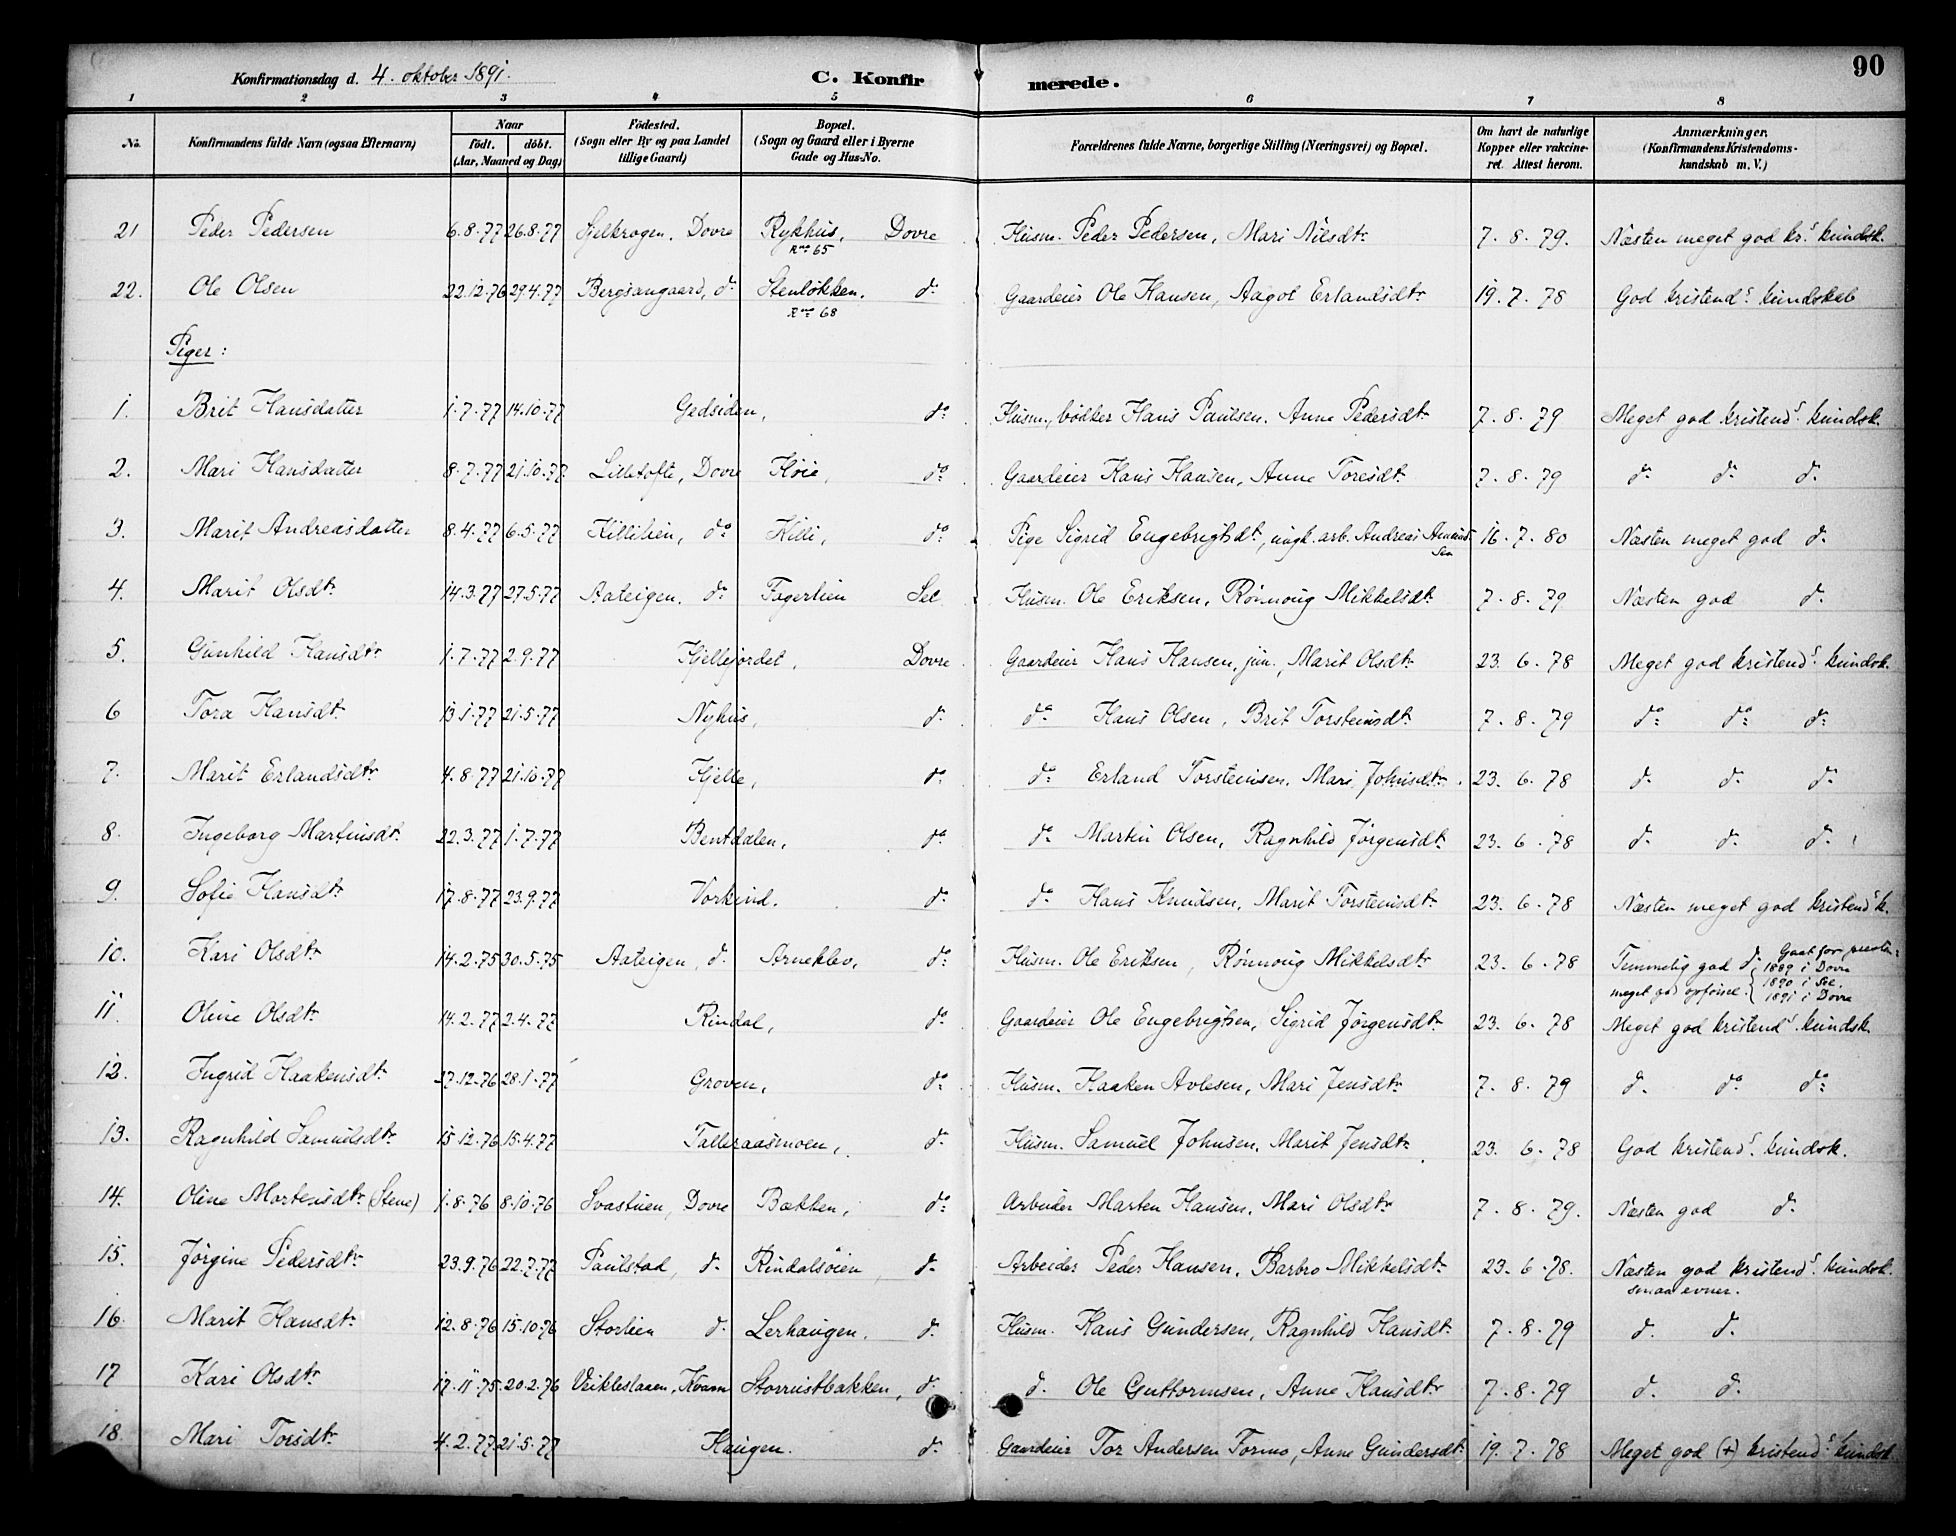 90
Konfirmationsdag d. 4. oktober 1891. C. Konfir merede.
1 2 3 4 5 6 7 8
No. Konfirmandens fulde Navn (ogsaa Efternavn) Naar født. døbt. (Aar, Maaned og Dag) Fødested. (Sogn eller By og paa Landet tillige Gaard) Bopæl. (Sogn og Gaard eller i Byerne Gade og Hus-No. Forældrenes fulde Navne, borgerlige Stilling (Næringsvei) og Bopæl. Om havt de naturlige Kopper eller vakcineret. Attest herom. Anmærkninger. (Konfirmandens Kristendomskundskab m. V.)
21 Peder Pedersen 6.8.77 26.8.77 Sjelkrogen, Dovre Rykhus, Dovre Husm. Peder Pedersen, Mari Nilsdtr 7. 8. 79. Næsten meget god kr.s kundsk.
65
22. Ole Olsen 22.12.76 29.4.77 Bergsangaard, do Stenløkken, do Gaardeier Ole Hansen, Aagot Erlandsdtr 19. 7. 78 God kristends kundskab
68
Piger:
1. Brit Hansdatter 1.7.77 14.10.77 Gedsiden, do Husm., bødker Hans Paulsen, Anne Pedersdtr 7. 8. 79 Meget god kristends kundsk.
2. Mari Hansdatter 8.7.77 21.10.77 Lilletofte, Dovre Høie, do Gaardeier Hans Hansen, Anne Toresdtr 7. 8. 79 do do do
3. Marit Andreasdatter 8.4.77 6.5.77 Killilien, do Killi, do Pige Sigrid Engebrigtsdtr, ungk. arb. Andreas Amundsen 16. 7. 80 Næsten meget god do
4. Marit Olsdtr 14.3.77 27.5.77 Aateigen, do Fagerlien Sel Husm. Ole Eriksen, Rønnoug Mikkelsdtr 7. 8. 79 Næsten god do
5. Gunhild Hansdtr 1.7.77 2.9.77 Kjellejordet, Dovre Gaardeier Hans Hansen, jun., Marit Olsdtr 23. 6. 78 Meget god kristends kundsk.
6 Tora Hansdtr 13.1.77 21.5.77 Nyhus, do do Hans Olsen, Brit Torsteinsdtr 7. 8. 79 do do do
7. Marit Erlandsdtr 4.8.77 21.10.77 Kjelle, do do Erland Torsteinsen, Mari Johnsdtr 23. 6. 78 do do do
8. Ingeborg Martinsdtr 22.3.77 1.7.77 Bentdalen, do do Martin Olsen, Ragnhild Jørgensdtr 23. 6. 78 do do do
9. Sofie Hansdtr 17.8.77 23.9.77 Vorkind, do do Hans Knudsen, Marit Torsteinsdtr 23. 6. 78 Næsten meget god kristends k.
10. Kari Olsdtr 14.2.75 30.5.75 Aateigen, do Arneklev, do Husm. Ole Eriksen, Rønnoug Mikkelsdtr 23. 6. 78 Temmelig god do Gaat for presten:
1889 i Dovre
meget god opførsel. 1890 i Sel.
1891 i Dovre
11. Oline Olsdtr 14.2.77 2.4.77 Rindal, do Gaardeier Ole Engebrigtsen, Sigrid Jørgensdtr 23. 6. 78 Meget god kristends kundsk.
12. Ingrid Haakensdtr 27.12.76 28.1.77 Groven, do Husm. Haaken Avlesen, Mari Jensdtr 7. 8. 79 do do do
13. Ragnhild Samuelsdtr 15.12.76 15.4.77 Talleraasmoen, do Husm. Samuel Johnsen, Marit Jensdtr 23. 6. 78 God kristends kundsk.
14. Oline Martensdtr (Stene) 1.8.76 8.10.76 Svastuen, Dovre Bækken, do Arbeider Marten Hansen, Mari Olsdtr 7. 8. 79. Næsten god do
15. Jørgine Pedersdtr 23.9.76 22.7.77 Paulstad, do Rindalsøien, do Arbeider Peder Hansen, Barbro Mikkelsdtr 23. 6. 78. Næsten god kristends kundsk.
smaa evner.
16. Marit Hansdtr 12.8.76 15.10.76 Storlien do Lerhaugen, do Husm. Hans Gundersen, Ragnhild Hansdtr 7. 8. 79 do do
17 Kari Olsdtr 17.11.75 20.2.76 Kvam Storrustbakken, do do Ole Guttormsen, Anne Hansdtr 7. 8. 79 do do
18. Mari Torsdtr 4.2.77 21.5.77 Haugen. do Gaardeier Tor Andersen Formo, Anne Gundersdtr 19. 7. 78 Meget god (+) kristends kundsk.